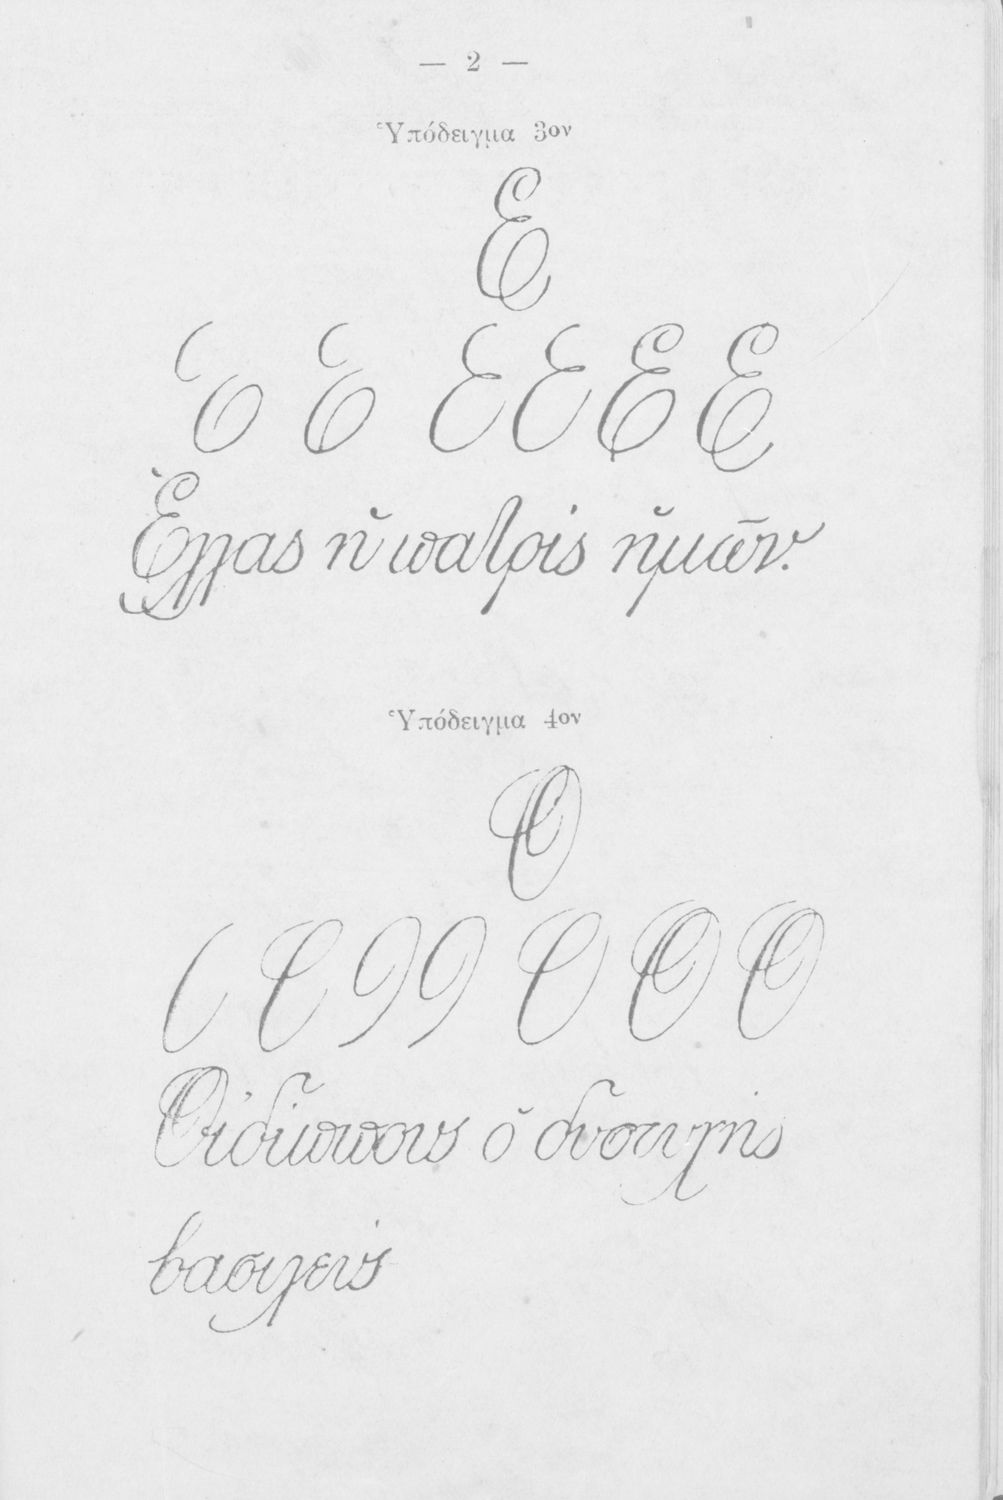 — 2 —
Ὑπόδειγμα 3ον
Ε
Ε Ε Ε Ε Ε Ε
Ἑλλας ἡ πατρίς ἡμῶν.
Ὑπόδειγμα 4ον
Ο
Ο Ο Ο
Οἰδίππους ὁ δυστυχής
βασιλεύς